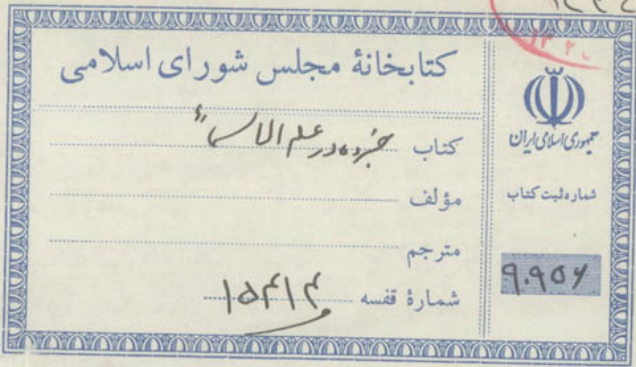 کتابخانهٔ مجلس شورای اسلامی
کتاب در علم
مؤلف
مترجم
شمارهٔ قفسه ۱۵۴۱۴
جمهوری اسلامی ایران
شماره ثبت کتاب
۹۰۹۵۶